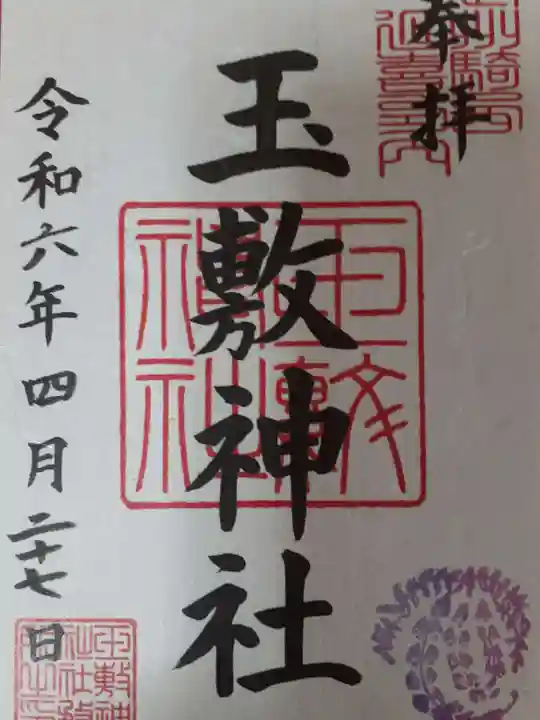 奉拝
玉敷神社
令和六年四月二十七日
玉敷神社